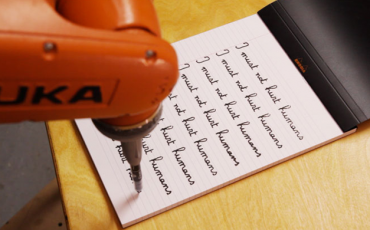 UKA
I must not hurt humans
I must not hurt humans
I must not hurt humans
I must not hurt humans
not hurt humans
hurt humans
hurt